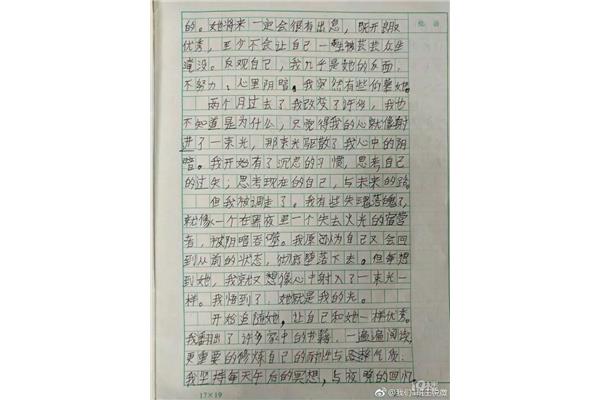 批语
的。她将来一定会很有出息，既开朗
优秀，至少不会让自己一 被芸芸众生
淹没。反观自己，我几乎是她的反面：
不努力、心里阴暗。我突然有些仰慕她。
两个月过去了我改变了许多，我也
不知道是为什么，只觉得我的心就像射
进了一束光，那束光驱散了我心中的阴
暗。我开始有了沉思的习惯，思考自己
的过失；思考现在的自己，与未来的路。
但我被调走了。我有些失魂落魄了，
就像一个在黑夜里一个失去火光的宿营
者，被阴暗吞噬。我原以为自己又会回
到从前的状态，彻底堕落下去。但每想
到她，我就又想像心中射入了一束光一
样。我悟到了，她就是我的光。
开始追随她，让自己和她一样优秀。
我翻出了许多家中的书籍，一遍遍阅读，
更重要的修炼自己的耐性与 气度：
我坚持每天午后的冥想，与夜晚的回忆
17×19
@我们 班主任微